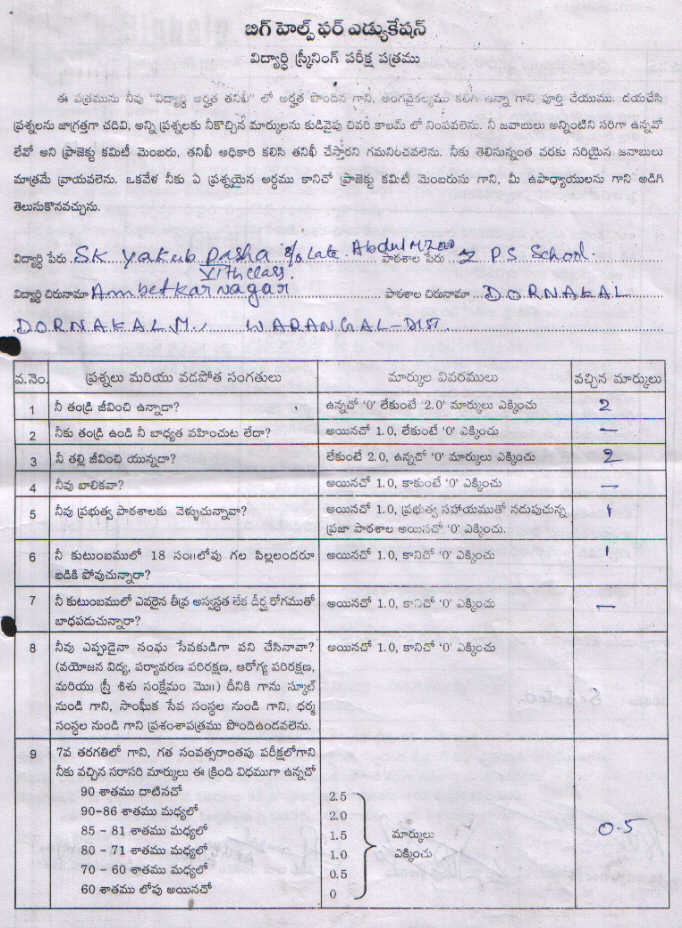 బిగ్ హెల్ప్ ఫర్ ఎడ్యుకేషన్
విద్యార్థి స్క్రీనింగ్ పరీక్ష పత్రము
ఈ పత్రమును నీవు "విద్యార్థి అర్హత తనిఖీ" లో అర్హత పొందిన గాని, అంగవైకల్యము కలిగి ఉన్నా గాని పూర్తి చేయుము. దయచేసి
ప్రశ్నలను జాగ్రత్తగా చదివి, అన్ని ప్రశ్నలకు నీకొచ్చిన మార్కులను కుడివైపు చివరి కాలమ్ లో నింపవలెను. నీ జవాబులు అన్నింటిని సరిగా ఉన్నవో
లేవో అని ప్రాజెక్టు కమిటీ మెంబరు, తనిఖీ అధికారి కలిసి తనిఖీ చేస్తారని గమనించవలెను. నీకు తెలిసున్నంత వరకు సరియైన జవాబులు
మాత్రమే వ్రాయవలెను. ఒకవేళ నీకు ఏ ప్రశ్నయైన అర్థము కానిచో ప్రాజెక్టు కమిటీ మెంబరును గాని, మీ ఉపాధ్యాయులను గాని అడిగి
తెలుసుకొనవచ్చును.
విద్యార్థి పేరు SK yakub pasha S/o Late. Abdul పాఠశాల పేరు Z PS School.
VIth class.
విద్యార్థి చిరునామా Ambetkar nagar పాఠశాల చిరునామా DORNAKAL
DORNAKAL M., WARANGAL-DIST.
వ.నెం. ప్రశ్నలు మరియు వడపోత సంగతులు మార్కుల వివరములు వచ్చిన మార్కులు
1 నీ తండ్రి జీవించి ఉన్నాడా? ఉన్నచో '0' లేకుంటే '2.0' మార్కులు ఎక్కించు 2
2 నీకు తండ్రి ఉండి నీ బాధ్యత వహించుట లేదా? అయినచో 1.0, లేకుంటే '0' ఎక్కించు –
3 నీ తల్లి జీవించి యున్నదా? లేకుంటే 2.0, ఉన్నచో '0' మార్కులు ఎక్కించు 2
4 నీవు బాలికవా? అయినచో 1.0, కాకుంటే '0' ఎక్కించు –
5 నీవు ప్రభుత్వ పాఠశాలకు వెళ్ళుచున్నావా? అయినచో 1.0, ప్రభుత్వ సహాయముతో నడుపుచున్న 1
ప్రజా పాఠశాల అయినచో '0' ఎక్కించు.
6 నీ కుటుంబములో 18 సం॥లోపు గల పిల్లలందరూ అయినచో 1.0, కానిచో '0' ఎక్కించు 1
బడికి పోవుచున్నారా?
7 నీ కుటుంబములో ఎవరైన తీవ్ర అస్వస్థత లేక దీర్ఘ రోగముతో అయినచో 1.0, కానిచో '0' ఎక్కించు –
బాధపడుచున్నారా?
8 నీవు ఎప్పుడైనా సంఘ సేవకుడిగా పని చేసినావా? అయినచో 1.0, కానిచో '0' ఎక్కించు
(వయోజన విద్య, పర్యావరణ పరిరక్షణ, ఆరోగ్య పరిరక్షణ,
మరియు స్త్రీ శిశు సంక్షేమం మొ॥) దీనికి గాను స్కూల్
నుండి గాని, సాంఘీక సేవ సంస్థల నుండి గాని, ధర్మ
సంస్థల నుండి గాని ప్రశంశాపత్రము పొందిఉండవలెను.
9 7వ తరగతిలో గాని, గత సంవత్సరాంతపు పరీక్షలోగాని
నీకు వచ్చిన సరాసరి మార్కులు ఈ క్రింది విధముగా ఉన్నచో
90 శాతము దాటినచో 2.5
90-86 శాతము మధ్యలో 2.0
85 - 81 శాతము మధ్యలో 1.5 మార్కులు 0.5
80 - 71 శాతము మధ్యలో 1.0 ఎక్కించు
70 - 60 శాతము మధ్యలో 0.5
60 శాతము లోపు అయినచో 0